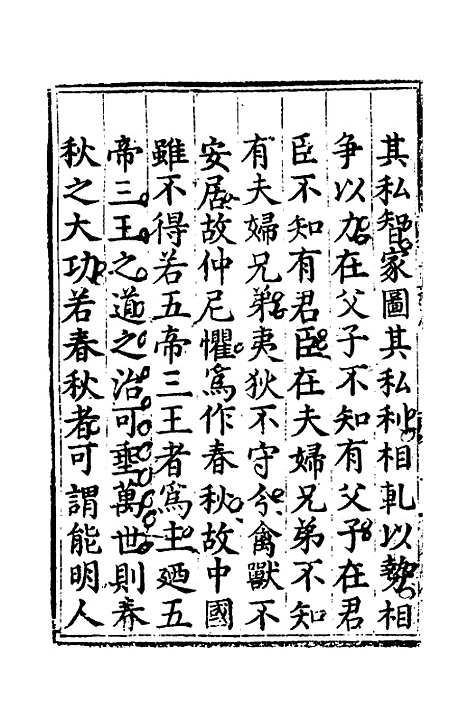 其私智家圖其私利相軋以勢相
争以力在父子不知有父子在君
臣不知有君臣在夫婦兄弟不知
有夫婦兄弟夷狄不守分禽獸不
安居故仲尼懼焉作春秋故中國
雖不得若五帝三王者為主廼五
帝三王之道之治可垂萬世則春
秋之大功若春秋者可謂能明人